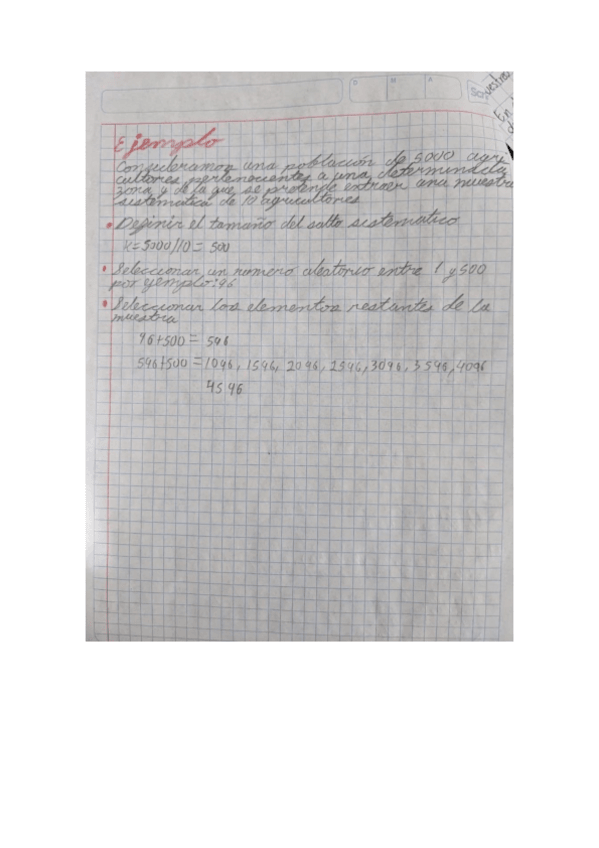 D M A
Ejemplo
Consideramos una población de 5000 agri
cultores pertenecientes a una determinada
zona y de la que se pretende extraer una muestra
sistematica de 10 agricultores
• Definir el tamaño del salto sistematico
K=5000/10= 500
• Seleccionar un numero aleatorio entre 1 y 500
por ejemplo: 96
• Seleccionar los elementos restantes de la
muestra
96+500= 596
596+500=1096, 1596, 2096, 2596, 3096, 3596, 4096
4596